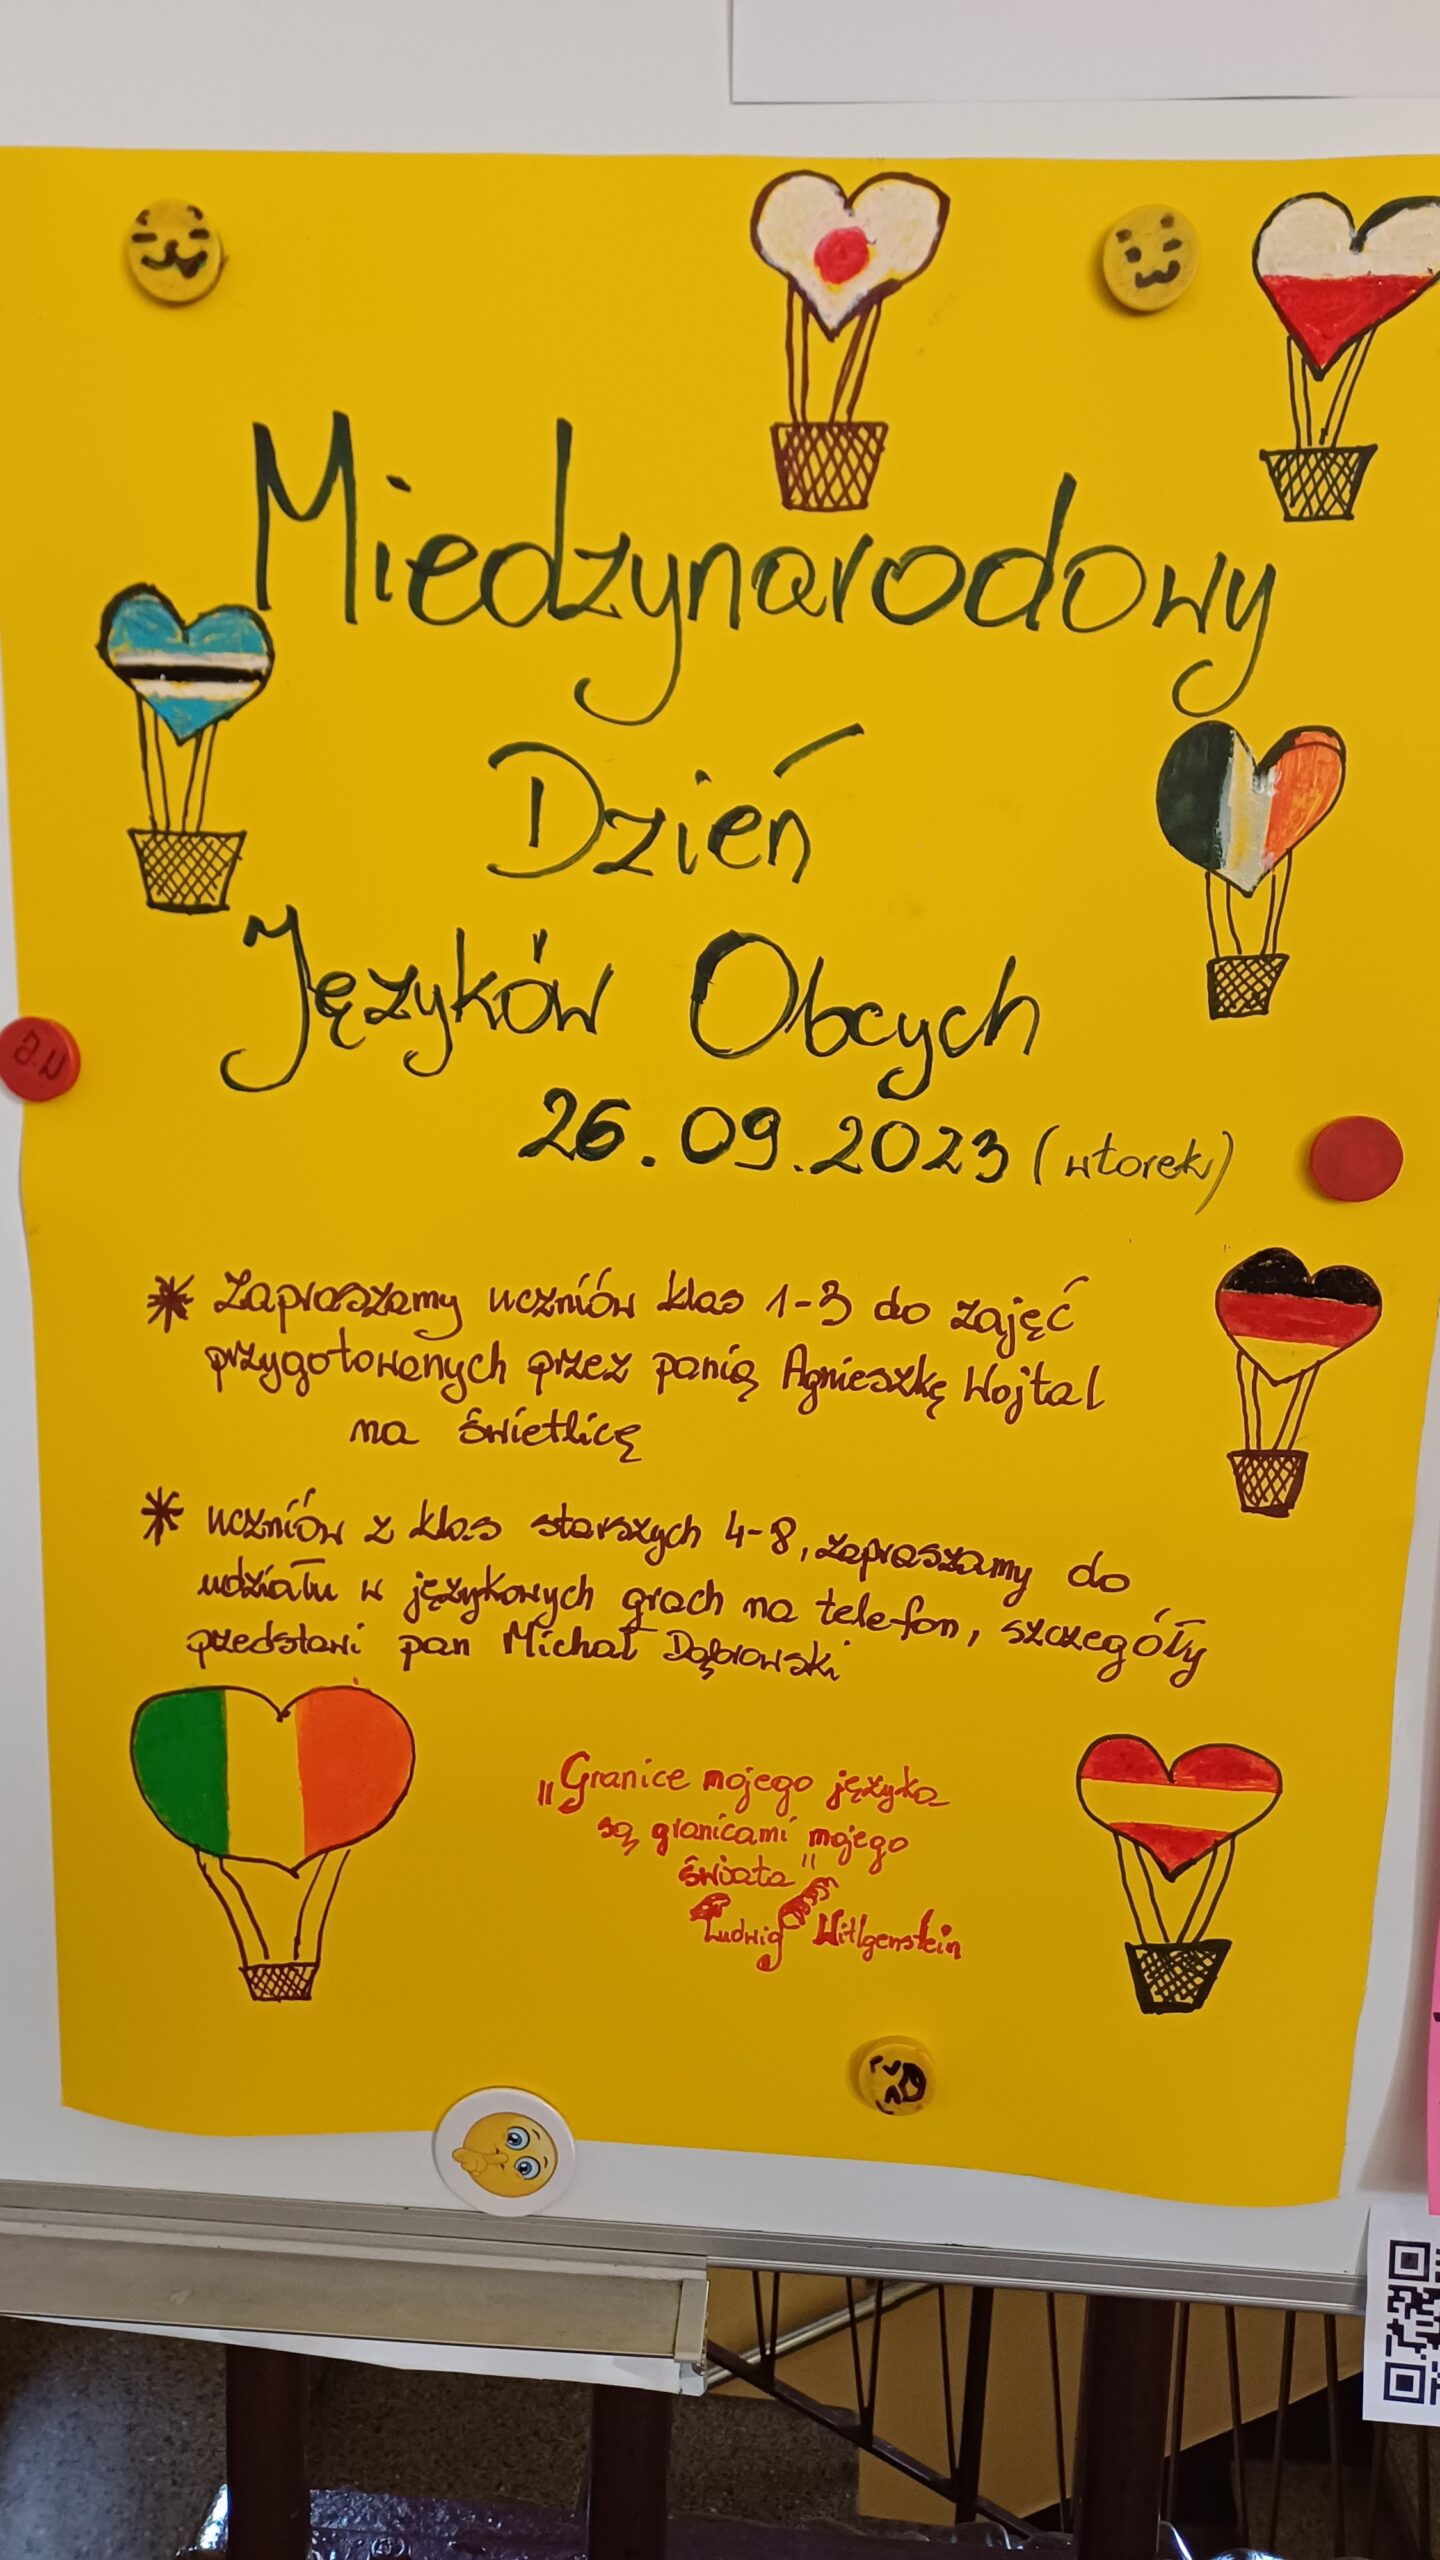 Miedzynarodowy
Dzień
Języków Obcych
26.09.2023 (wtorek)
* Zapraszamy uczniów klas 1-3 do zajęć
przygotowanych przez panią Agnieszkę Wojtal
na świetlicę
* uczniów z klas starszych 4-8, zapraszamy do
udziału w językowych grach na telefon, szczegóły
przedstawi pan Michał Dąbrowski
„Granice mojego języka
są granicami mojego
świata"
Ludwig Witlgenstein